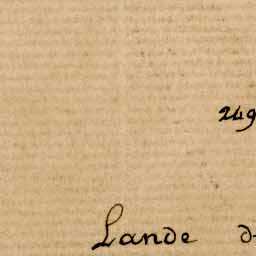 249
Lande d